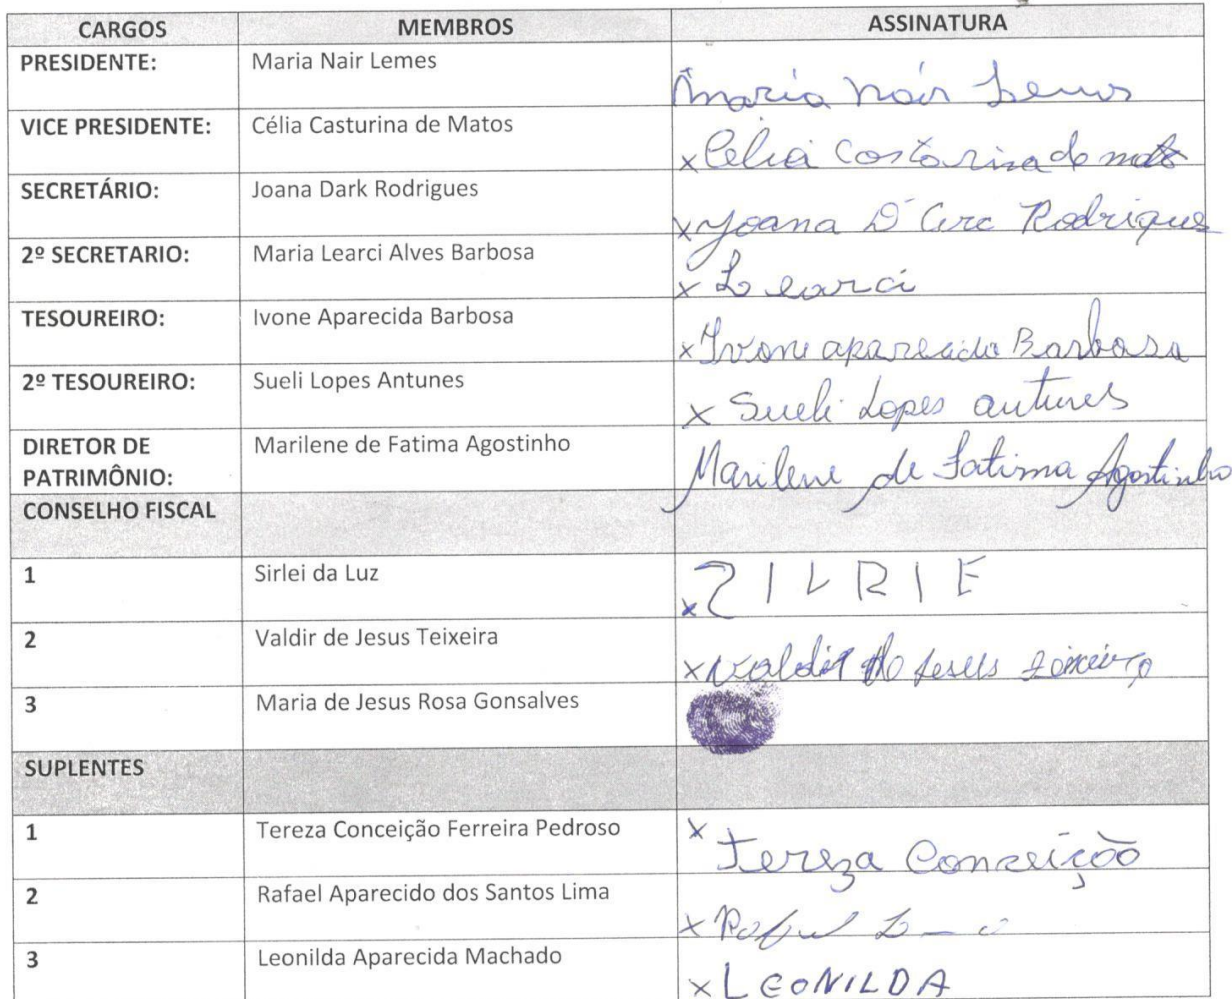 CARGOS MEMBROS ASSINATURA
PRESIDENTE: Maria Nair Lemes Maria Nair Lemes
VICE PRESIDENTE: Célia Casturina de Matos x Celia Costorina de mats
SECRETÁRIO: Joana Dark Rodrigues x Joana D'Arc Rodrigues
2º SECRETARIO: Maria Learci Alves Barbosa x Learci
TESOUREIRO: Ivone Aparecida Barbosa x Ivone aparecida Barbosa
2º TESOUREIRO: Sueli Lopes Antunes x Sueli Lopes antunes
DIRETOR DE Marilene de Fatima Agostinho Marilene de Fatima Agostinho
PATRIMÔNIO:
CONSELHO FISCAL
1 Sirlei da Luz x ZILRIE
2 Valdir de Jesus Teixeira x Valdir de Jesus
3 Maria de Jesus Rosa Gonsalves
SUPLENTES
1 Tereza Conceição Ferreira Pedroso x Tereza Conceição
2 Rafael Aparecido dos Santos Lima x
3 Leonilda Aparecida Machado x LEONILDA